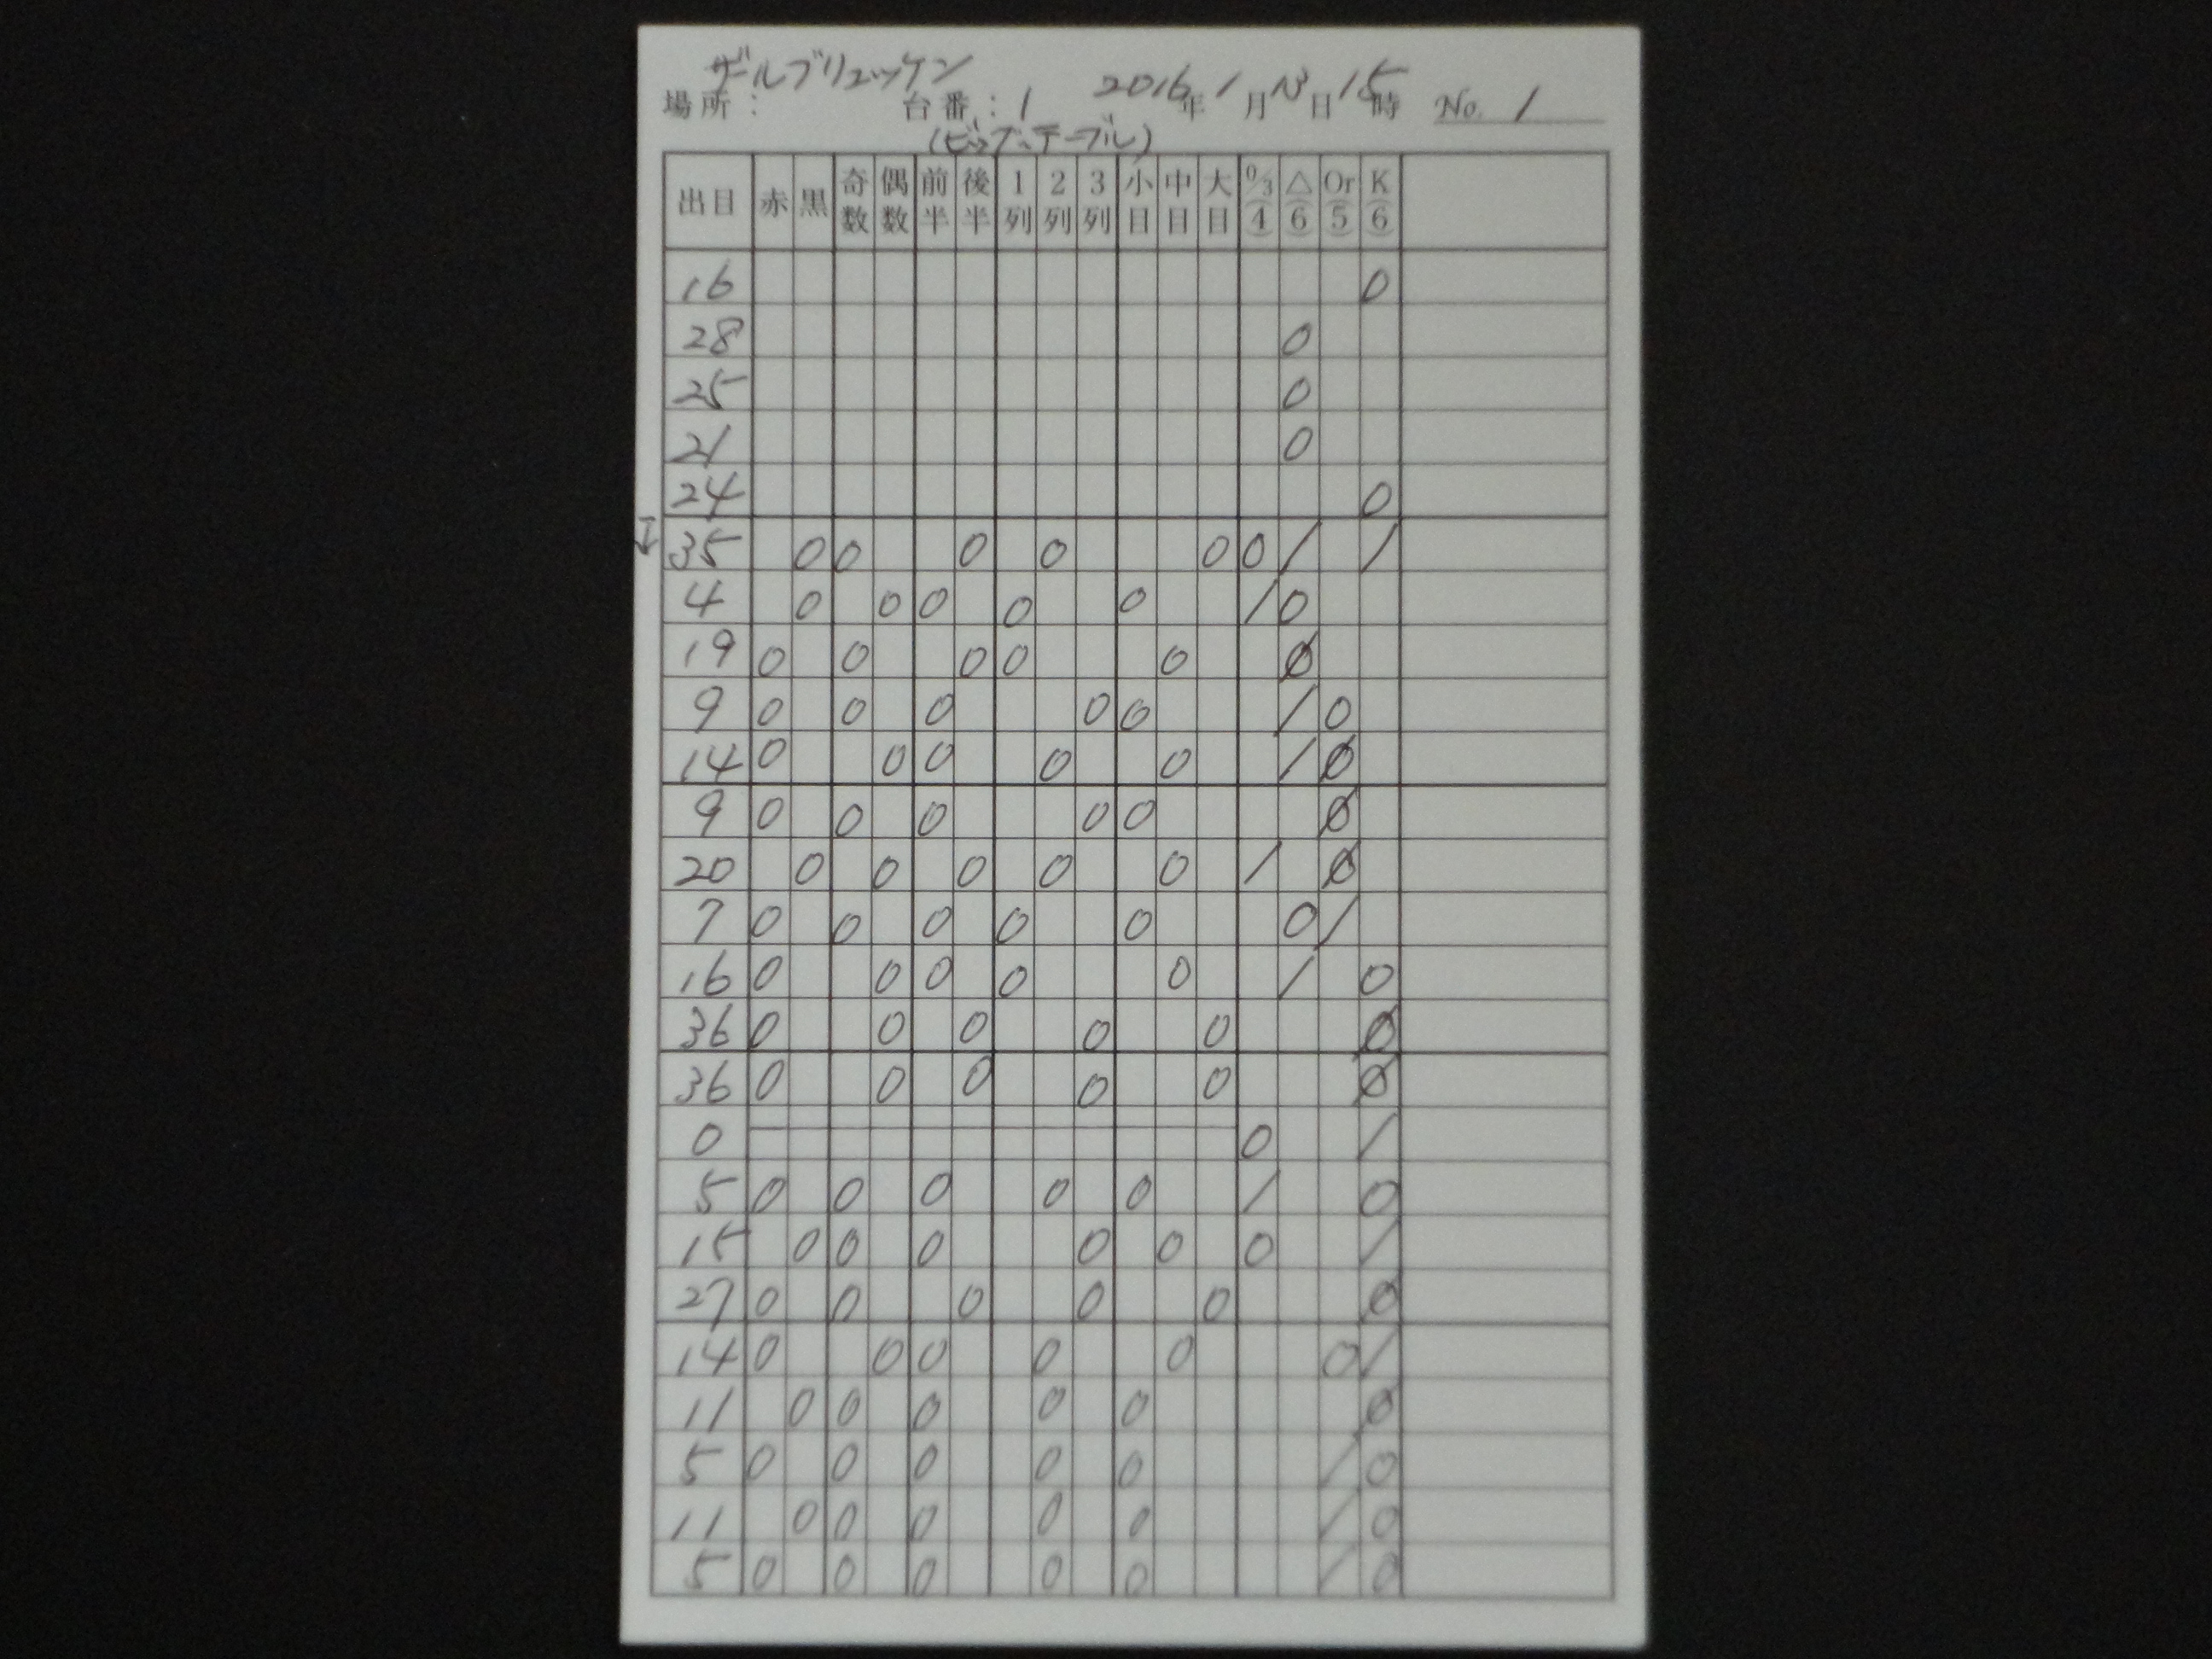 ザールブリュッケン
場所： 台番：1 2016年1月13日15時 No. 1
(ビッグ・テーブル)
出目 赤 黒 奇数 偶数 前半 後半 1列 2列 3列 小目 中目 大目 0/3(4) △(6) Or(5) K(6)
16 0
28 0
25 0
21 0
24 0
↓ 35 0 0 0 0 0 0 / /
4 0 0 0 0 0 / 0
19 0 0 0 0 0 Ø
9 0 0 0 0 0 / 0
14 0 0 0 0 0 / Ø
9 0 0 0 0 0 Ø
20 0 0 0 0 0 / Ø
7 0 0 0 0 0 0 /
16 0 0 0 0 0 / 0
36 0 0 0 0 0 Ø
36 0 0 0 0 0 Ø
0 0 /
5 0 0 0 0 0 / 0
15 0 0 0 0 0 0 /
27 0 0 0 0 0 Ø
14 0 0 0 0 0 0 /
11 0 0 0 0 0 Ø
5 0 0 0 0 0 / 0
11 0 0 0 0 0 / 0
5 0 0 0 0 0 / 0